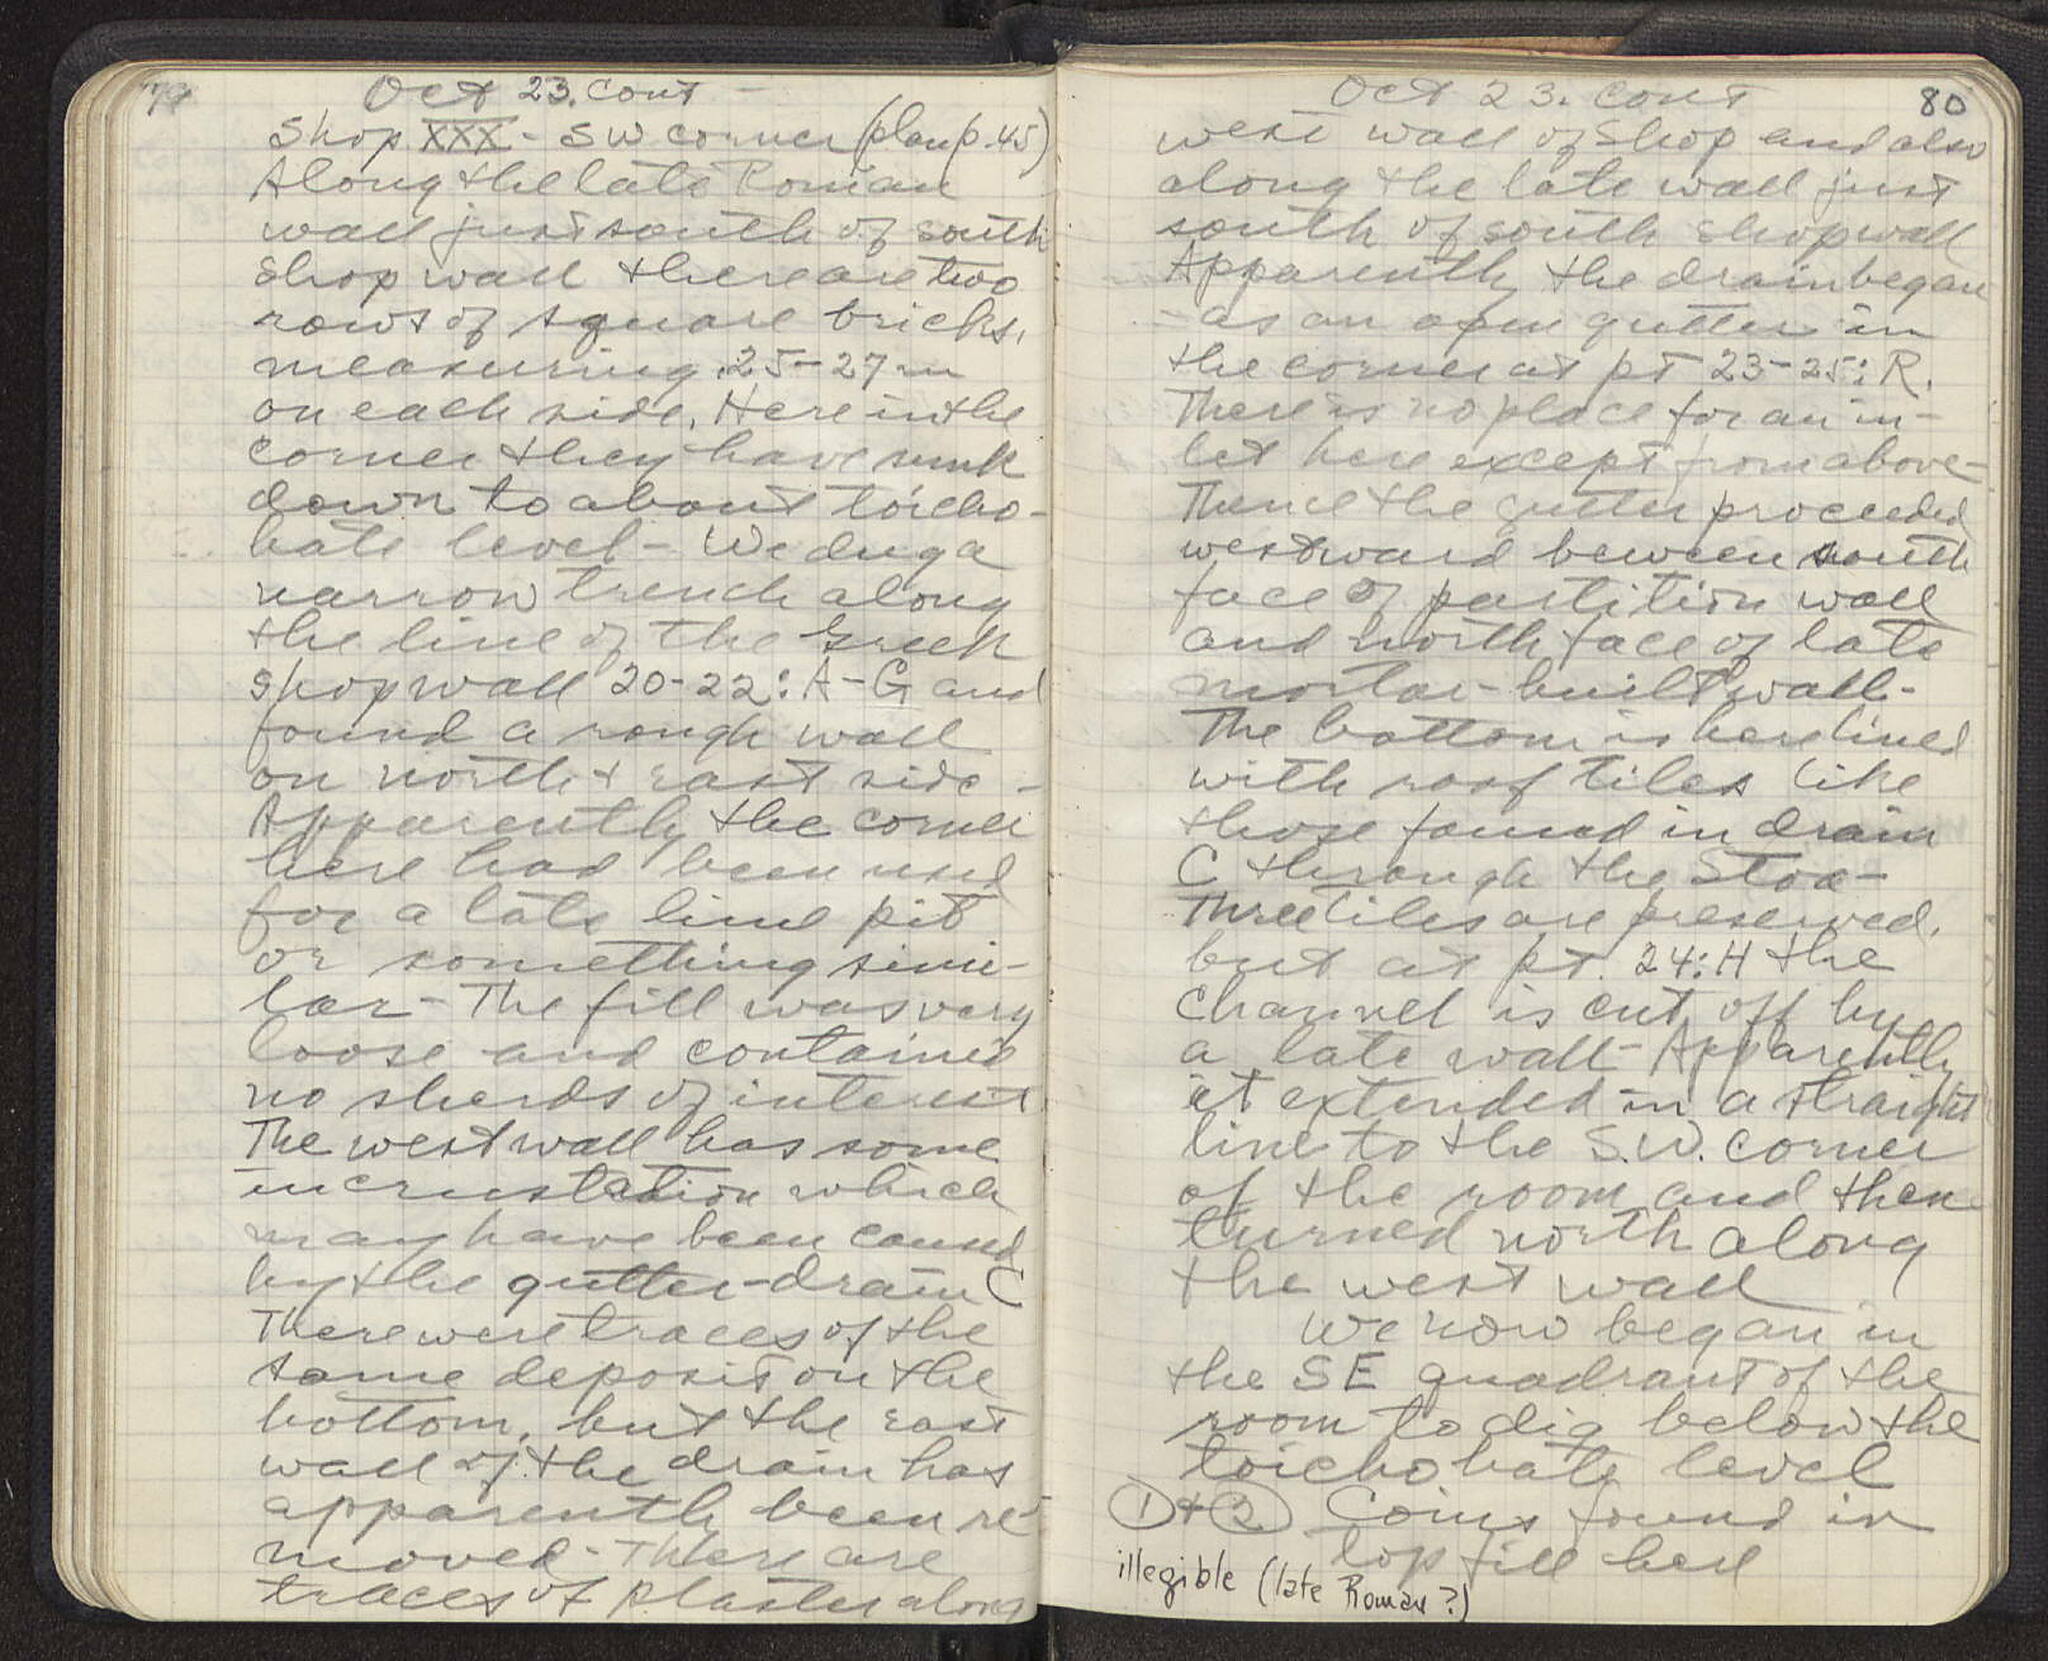 79
Oct 23. Cont
Shop XXX - SW corner (plan p. 45)
Along the late Roman
wall just south of south
shop wall there are two
rows of square bricks,
measuring .25-27 m
on each side. Here in the
corner they have sunk
down to about toicho-
bate level - We dug a
narrow trench along
the line of the Greek
shop wall 20-22: A-G and
found a rough wall
on north + east side -
Apparently the corner
here had been used
for a late lime pit
or something simi-
lar - The fill was very
loose and contained
no sherds of interest
The west wall has some
incrustation which
may have been caused
by the gutter-drain C
There were traces of the
same deposit on the
bottom, but the east
wall of the drain has
apparently been re-
moved - There are
traces of plaster along
80
Oct 23. Cont
west wall of shop and also
along the late wall just
south of south shop wall
Apparently the drain began
as an open gutter in
the corner at pt 23-25: R.
There is no place for an in-
let here except from above -
Thence the gutter proceeded
westward beween south
face of partition wall
and north face of late
mortar-built wall -
The bottom is here lined
with roof tiles like
those found in drain
C through the Stoa -
Three tiles are preserved,
but at pt. 24: H the
channel is cut off by
a late wall - Apparently
it extended in a straight
line to the S.W. corner
of the room and then
turned north along
the west wall
We now began in
the SE quadrant of the
room to dig below the
toichobate level
1 + 2 Coins found in
top fill here
illegible (late Roman ?)